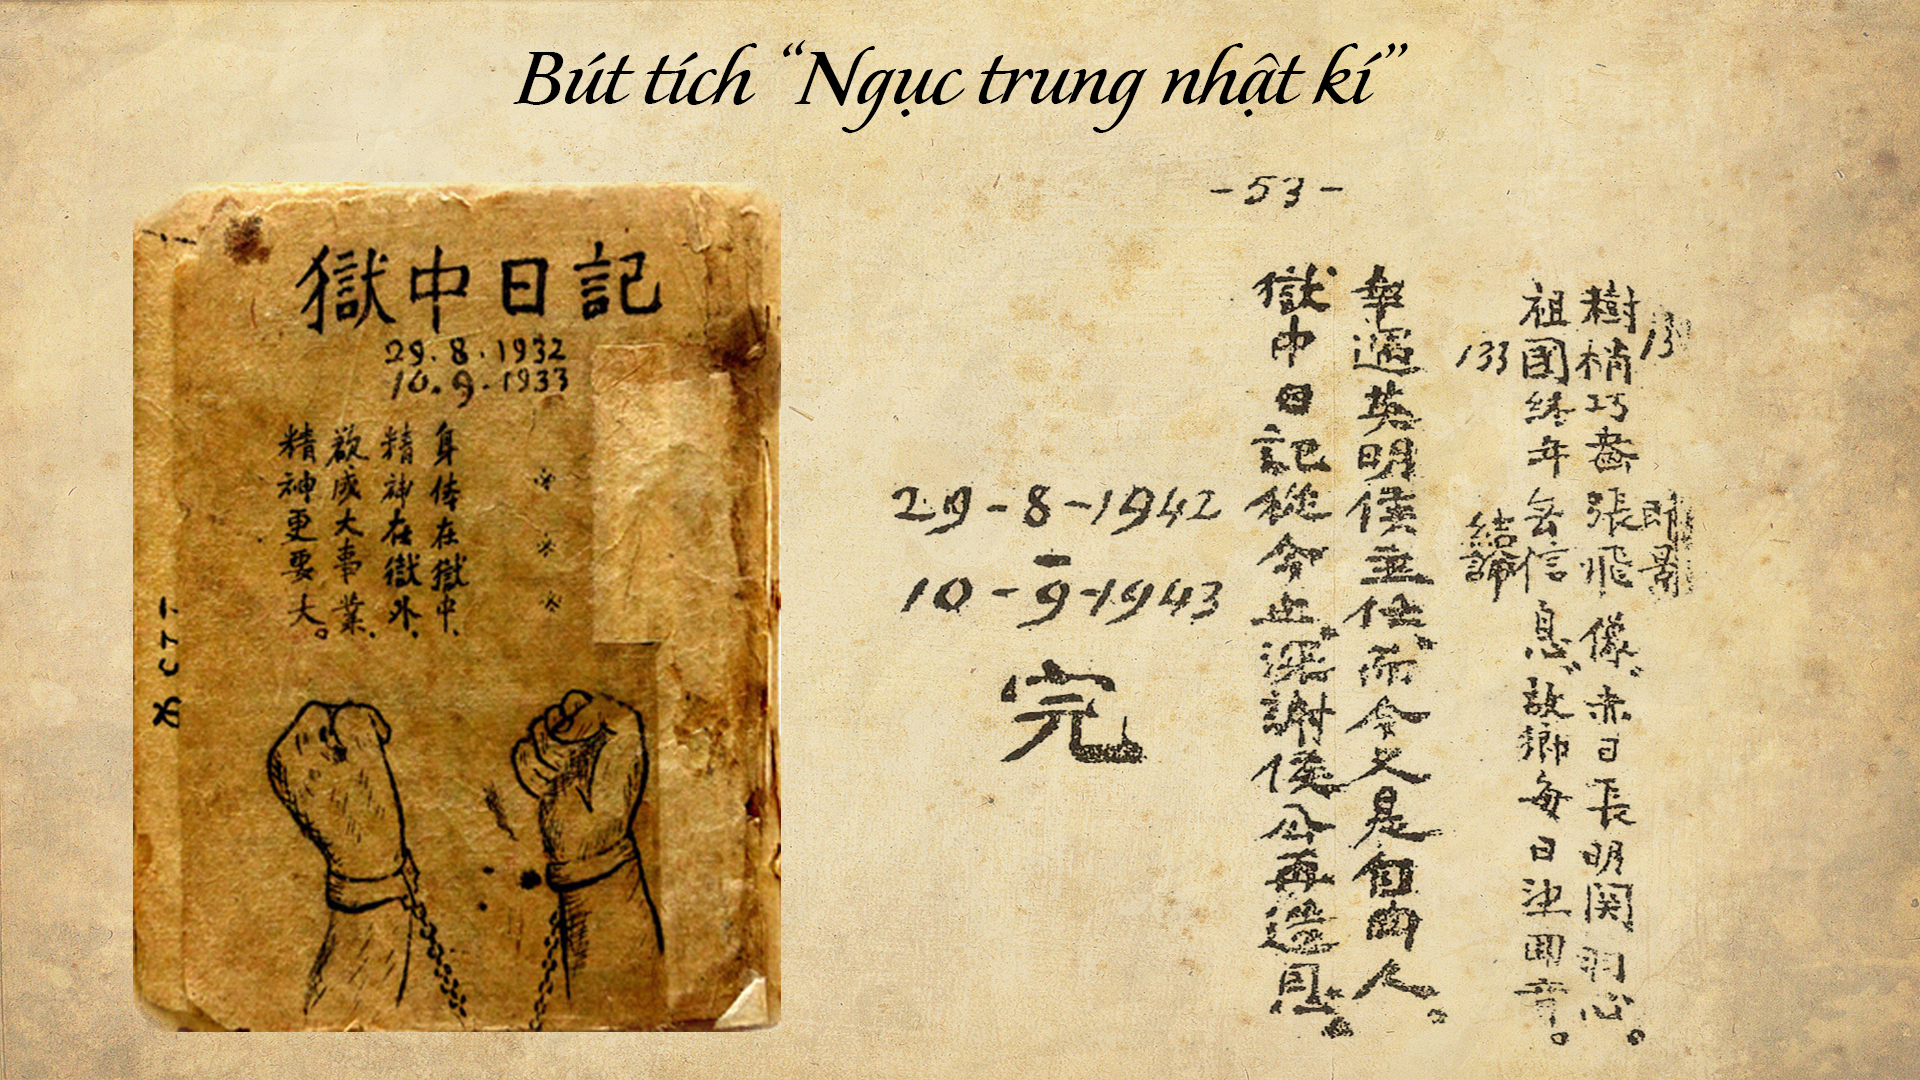 Bút tích “Ngục trung nhật kí”
獄中日記
29.8.1932
10.9.1933
身体在獄中、
精神在獄外、
欲成大事業、
精神更要大。
-53-
即景
樹梢巧畫張飛像、
赤日長明関羽心。
祖國終年無信息、
故鄉每日望回音。
133
結論
幸遇英明侯主任、而今又是自由人。
獄中日記從今止、深謝侯公再造恩。
29-8-1942
-
10-9-1943
完